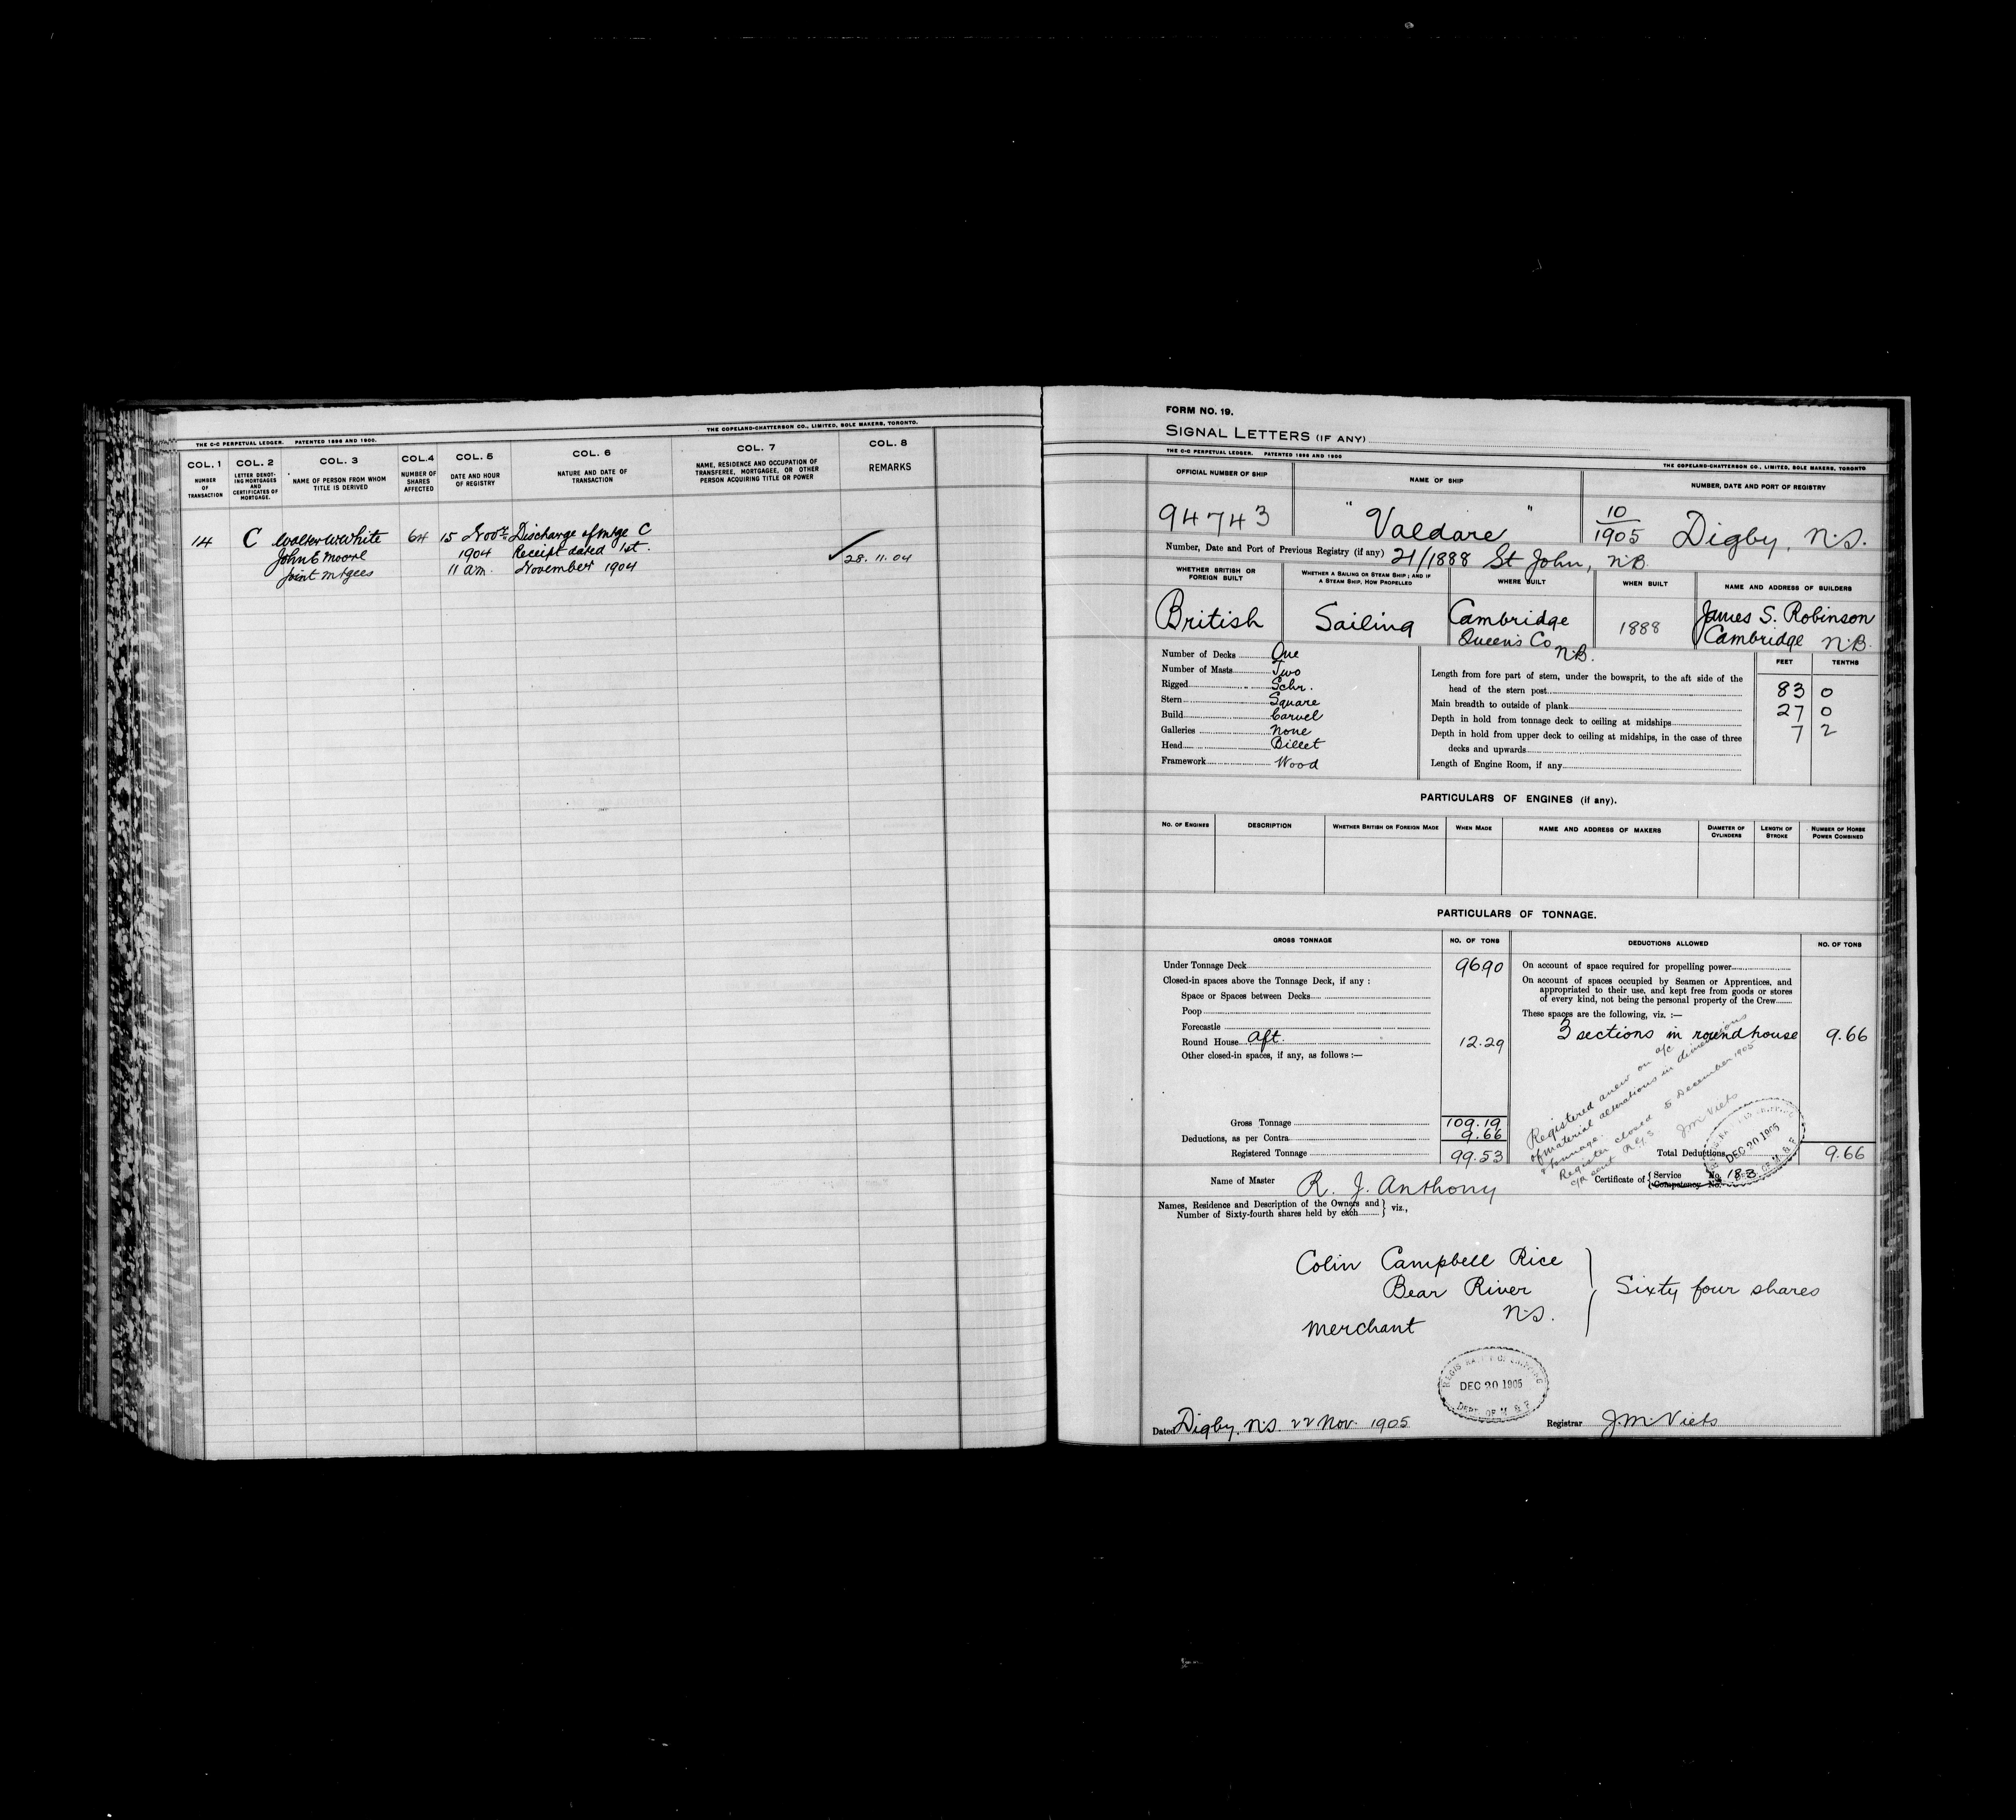 THE C-C PERPETUAL LEDGER. PATENTED 1896 AND 1900.
THE COPELAND-CHATTERSON CO., LIMITED, SOLE MAKERS, TORONTO.
COL. 1 COL. 2 COL. 3 COL. 4 COL. 5 COL. 6 COL. 7 COL. 8
NUMBER OF TRANSACTION
LETTER DENOTING MORTGAGES AND CERTIFICATES OF MORTGAGE.
NAME OF PERSON FROM WHOM TITLE IS DERIVED
NUMBER OF SHARES AFFECTED
DATE AND HOUR OF REGISTRY
NATURE AND DATE OF TRANSACTION
NAME, RESIDENCE AND OCCUPATION OF TRANSFEREE, MORTGAGEE, OR OTHER PERSON ACQUIRING TITLE OR POWER
REMARKS
14 C Walter W White 64 15 Novr Discharge of mtge C
John E Moore 1904 Receipt dated 1st.
Joint mtgees 11 am. November 1904
28.11.04
FORM NO. 19.
SIGNAL LETTERS (IF ANY)
THE C-C PERPETUAL LEDGER. PATENTED 1896 AND 1900
THE COPELAND-CHATTERSON CO., LIMITED, SOLE MAKERS, TORONTO
OFFICIAL NUMBER OF SHIP NAME OF SHIP NUMBER, DATE AND PORT OF REGISTRY
94743 "Valdare" 10/1905 Digby, N.S.
Number, Date and Port of Previous Registry (if any) 21/1888 St John, N.B.
WHETHER BRITISH OR FOREIGN BUILT
WHETHER A SAILING OR STEAM SHIP; AND IF A STEAM SHIP, HOW PROPELLED
WHERE BUILT
WHEN BUILT
NAME AND ADDRESS OF BUILDERS
British Sailing Cambridge 1888 James S. Robinson
Queen's Co N.B. Cambridge N.B.
Number of Decks One
Number of Masts Two
Rigged Schr.
Stern Square
Build Carvel
Galleries None
Head Billet
Framework Wood
FEET TENTHS
Length from fore part of stem, under the bowsprit, to the aft side of the
head of the stern post 83 0
Main breadth to outside of plank 27 0
Depth in hold from tonnage deck to ceiling at midships 7 2
Depth in hold from upper deck to ceiling at midships, in the case of three
decks and upwards
Length of Engine Room, if any
PARTICULARS OF ENGINES (if any).
NO. OF ENGINES DESCRIPTION WHETHER BRITISH OR FOREIGN MADE WHEN MADE NAME AND ADDRESS OF MAKERS DIAMETER OF CYLINDERS LENGTH OF STROKE NUMBER OF HORSE POWER COMBINED
PARTICULARS OF TONNAGE.
GROSS TONNAGE NO. OF TONS DEDUCTIONS ALLOWED NO. OF TONS
Under Tonnage Deck 96.90
Closed-in spaces above the Tonnage Deck, if any :
Space or Spaces between Decks
Poop
Forecastle
Round House Aft. 12.29
Other closed-in spaces, if any, as follows :—
Gross Tonnage 109.19
Deductions, as per Contra 9.66
Registered Tonnage 99.53
On account of space required for propelling power
On account of spaces occupied by Seamen or Apprentices, and
appropriated to their use, and kept free from goods or stores
of every kind, not being the personal property of the Crew
These spaces are the following, viz. :—
3 sections in roundhouse 9.66
Registered anew on a/c
of material alterations in dimensions
& tonnage.
Register closed 5 December 1905
J M Viets
DEC 20 1905
Total Deductions 9.66
Name of Master R. J. Anthony
Certificate of Service Competency No. 183
Names, Residence and Description of the Owners and
Number of Sixty-fourth shares held by each viz.,
Colin Campbell Rice
Bear River Sixty four shares
N.S.
Merchant
REGISTRAR OF SHIPPING
DEC 20 1905
DEPT. OF M. & F.
Dated Digby, N.S. 22 Nov. 1905 Registrar J.M. Viets